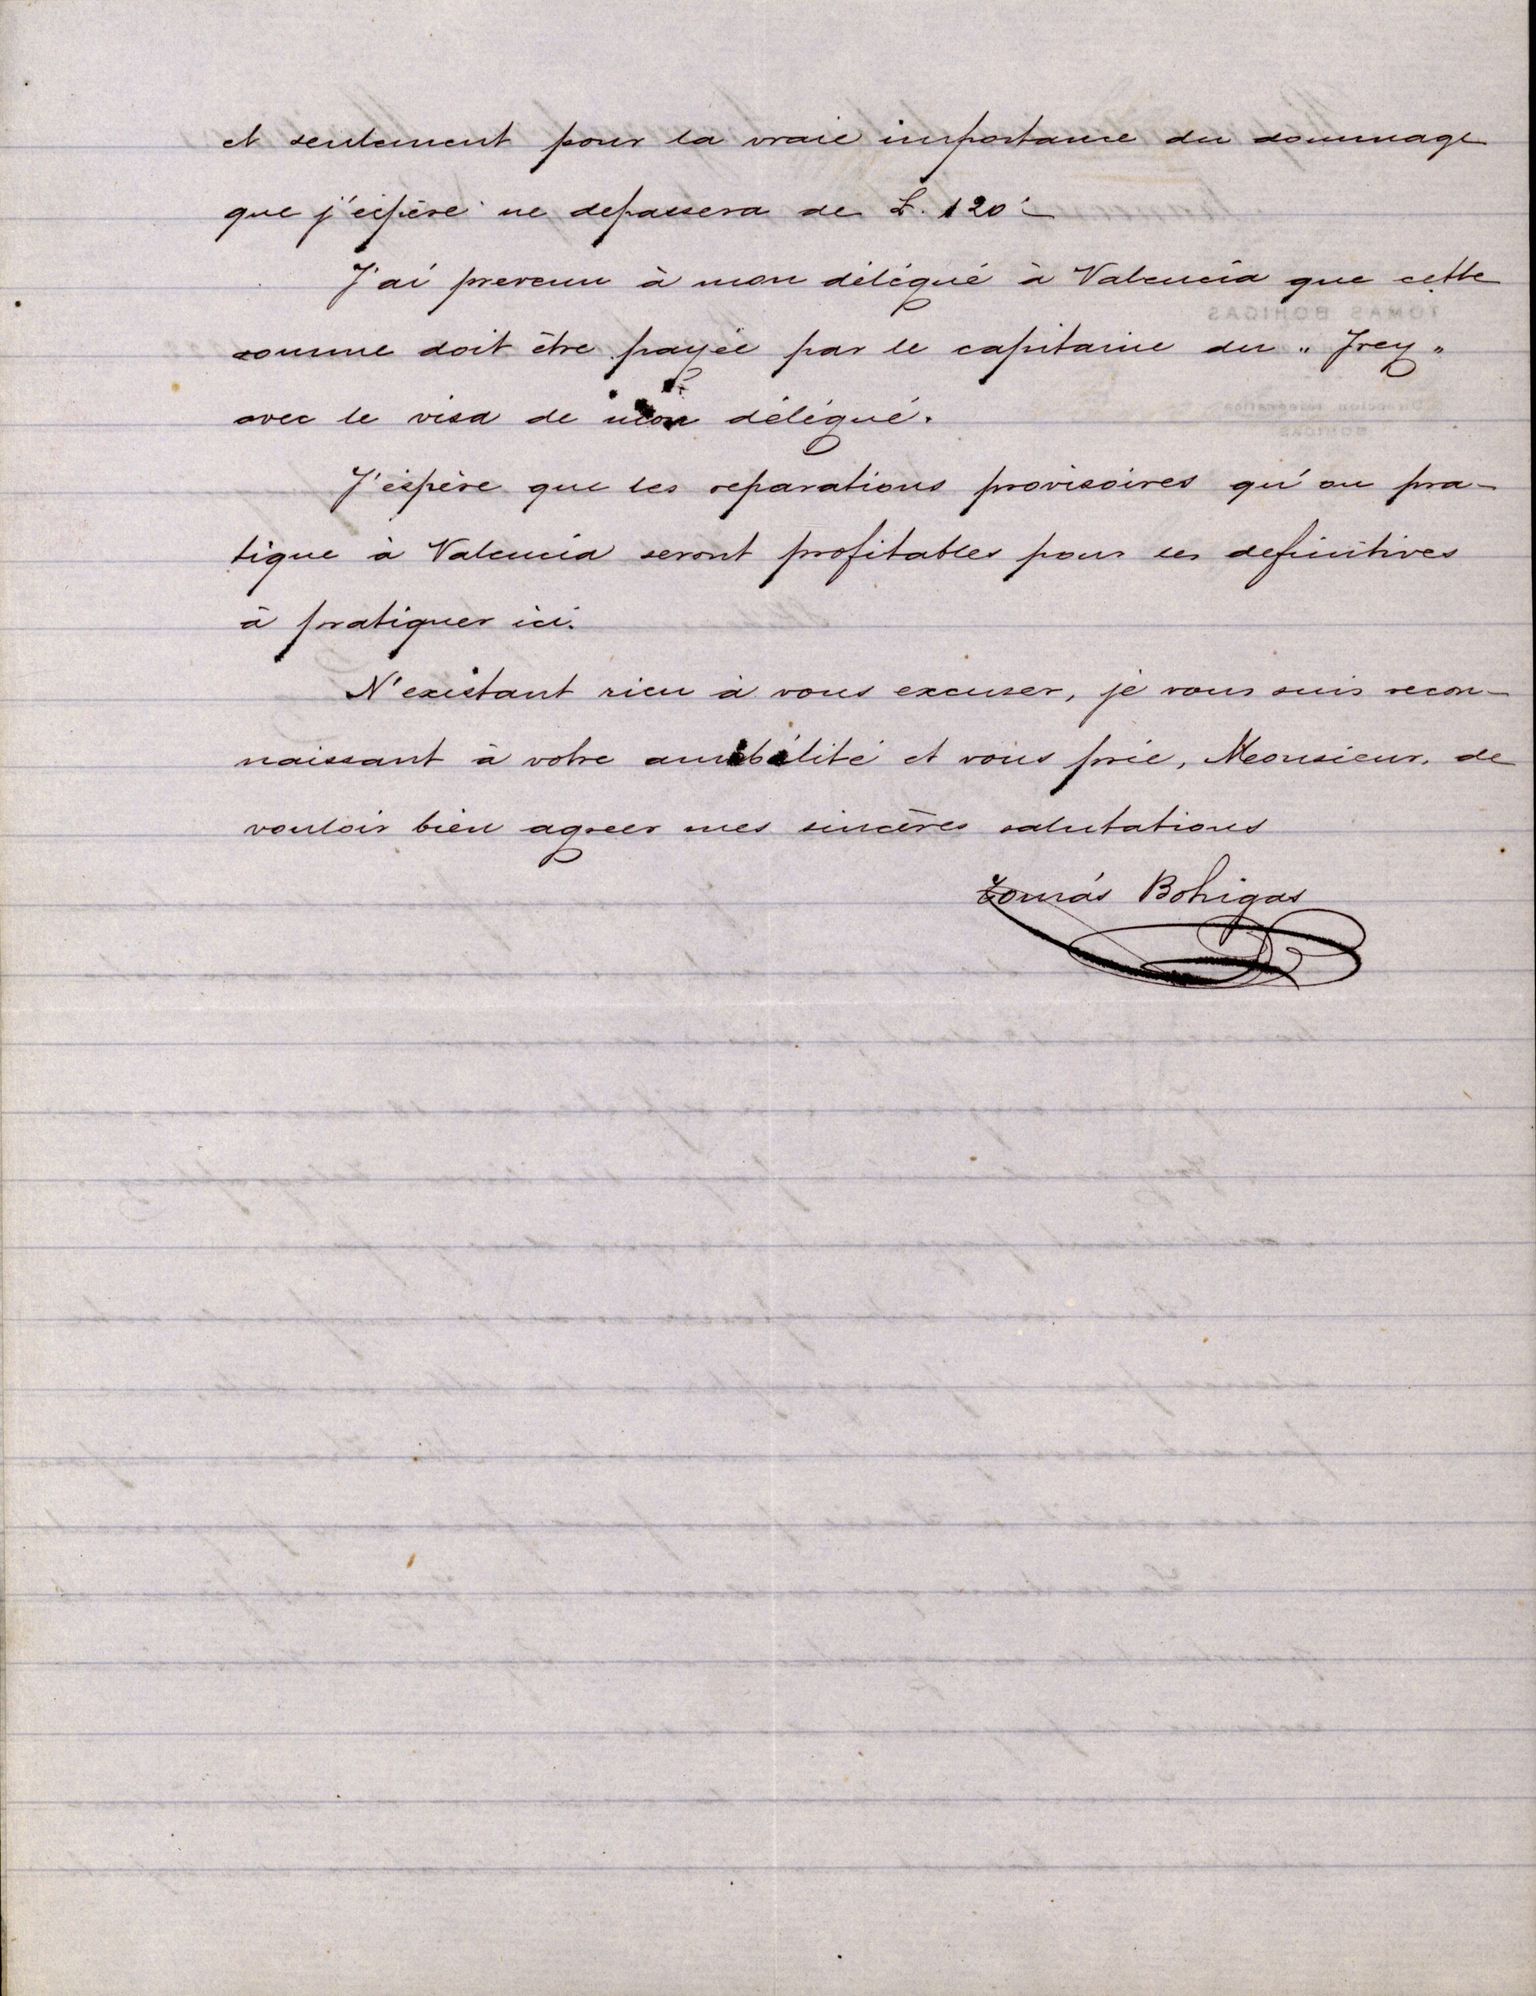 et seulement pour la vraie importance du dommage
que j'éspère ne depassera de £. 120.-
J'ai prevenu à mon délégué à Valencia que cette
somme doit être payée par le capitaine du "Frey"
avec le visa de mon délégué.
J'éspère que les reparations provisoires qu'on pra-
tique à Valencia seront profitables pour les definitives
à pratiquer ici.
N'existant rien à vous excuser, je vous suis recon-
naissant à votre amabilité et vous prie, Monsieur, de
vouloir bien agreer mes sincères salutations
Tomás Bohigas